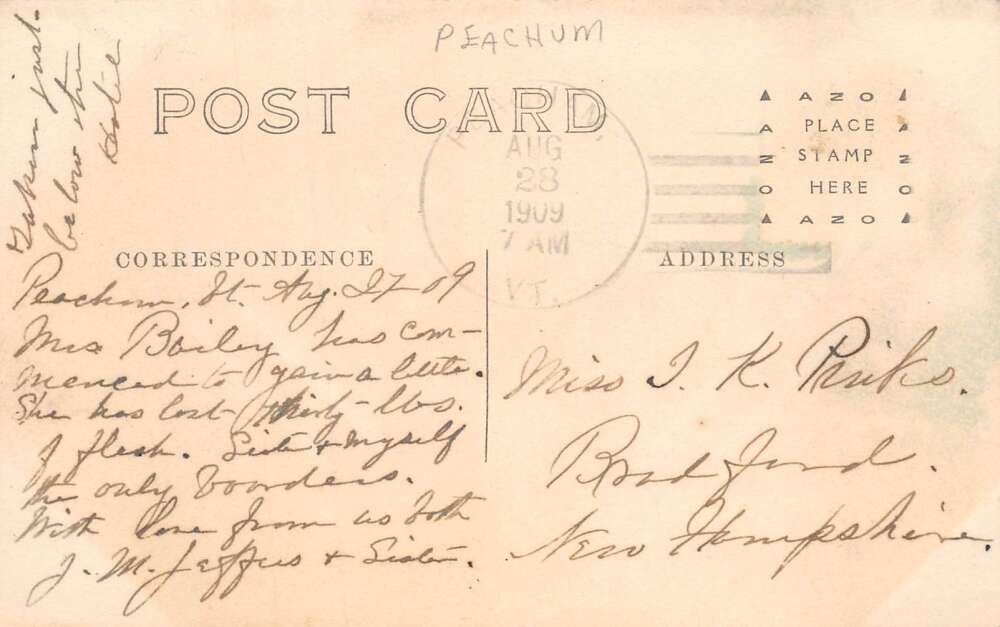 PEACHUM
Taken just
below the
Hotel
POST CARD
AUG
28
1909
7 AM
VT.
AZO
PLACE
STAMP
HERE
AZO
CORRESPONDENCE
ADDRESS
Peachum, Vt. Aug. 27 09
Mrs Bailey has com-
menced to gain a little.
She has lost thirty-lbs.
of flesh. Sister & myself
the only boarders.
With love from us both
J. M. & Sister.
Miss J. K.
Bradford.
New Hampshire.